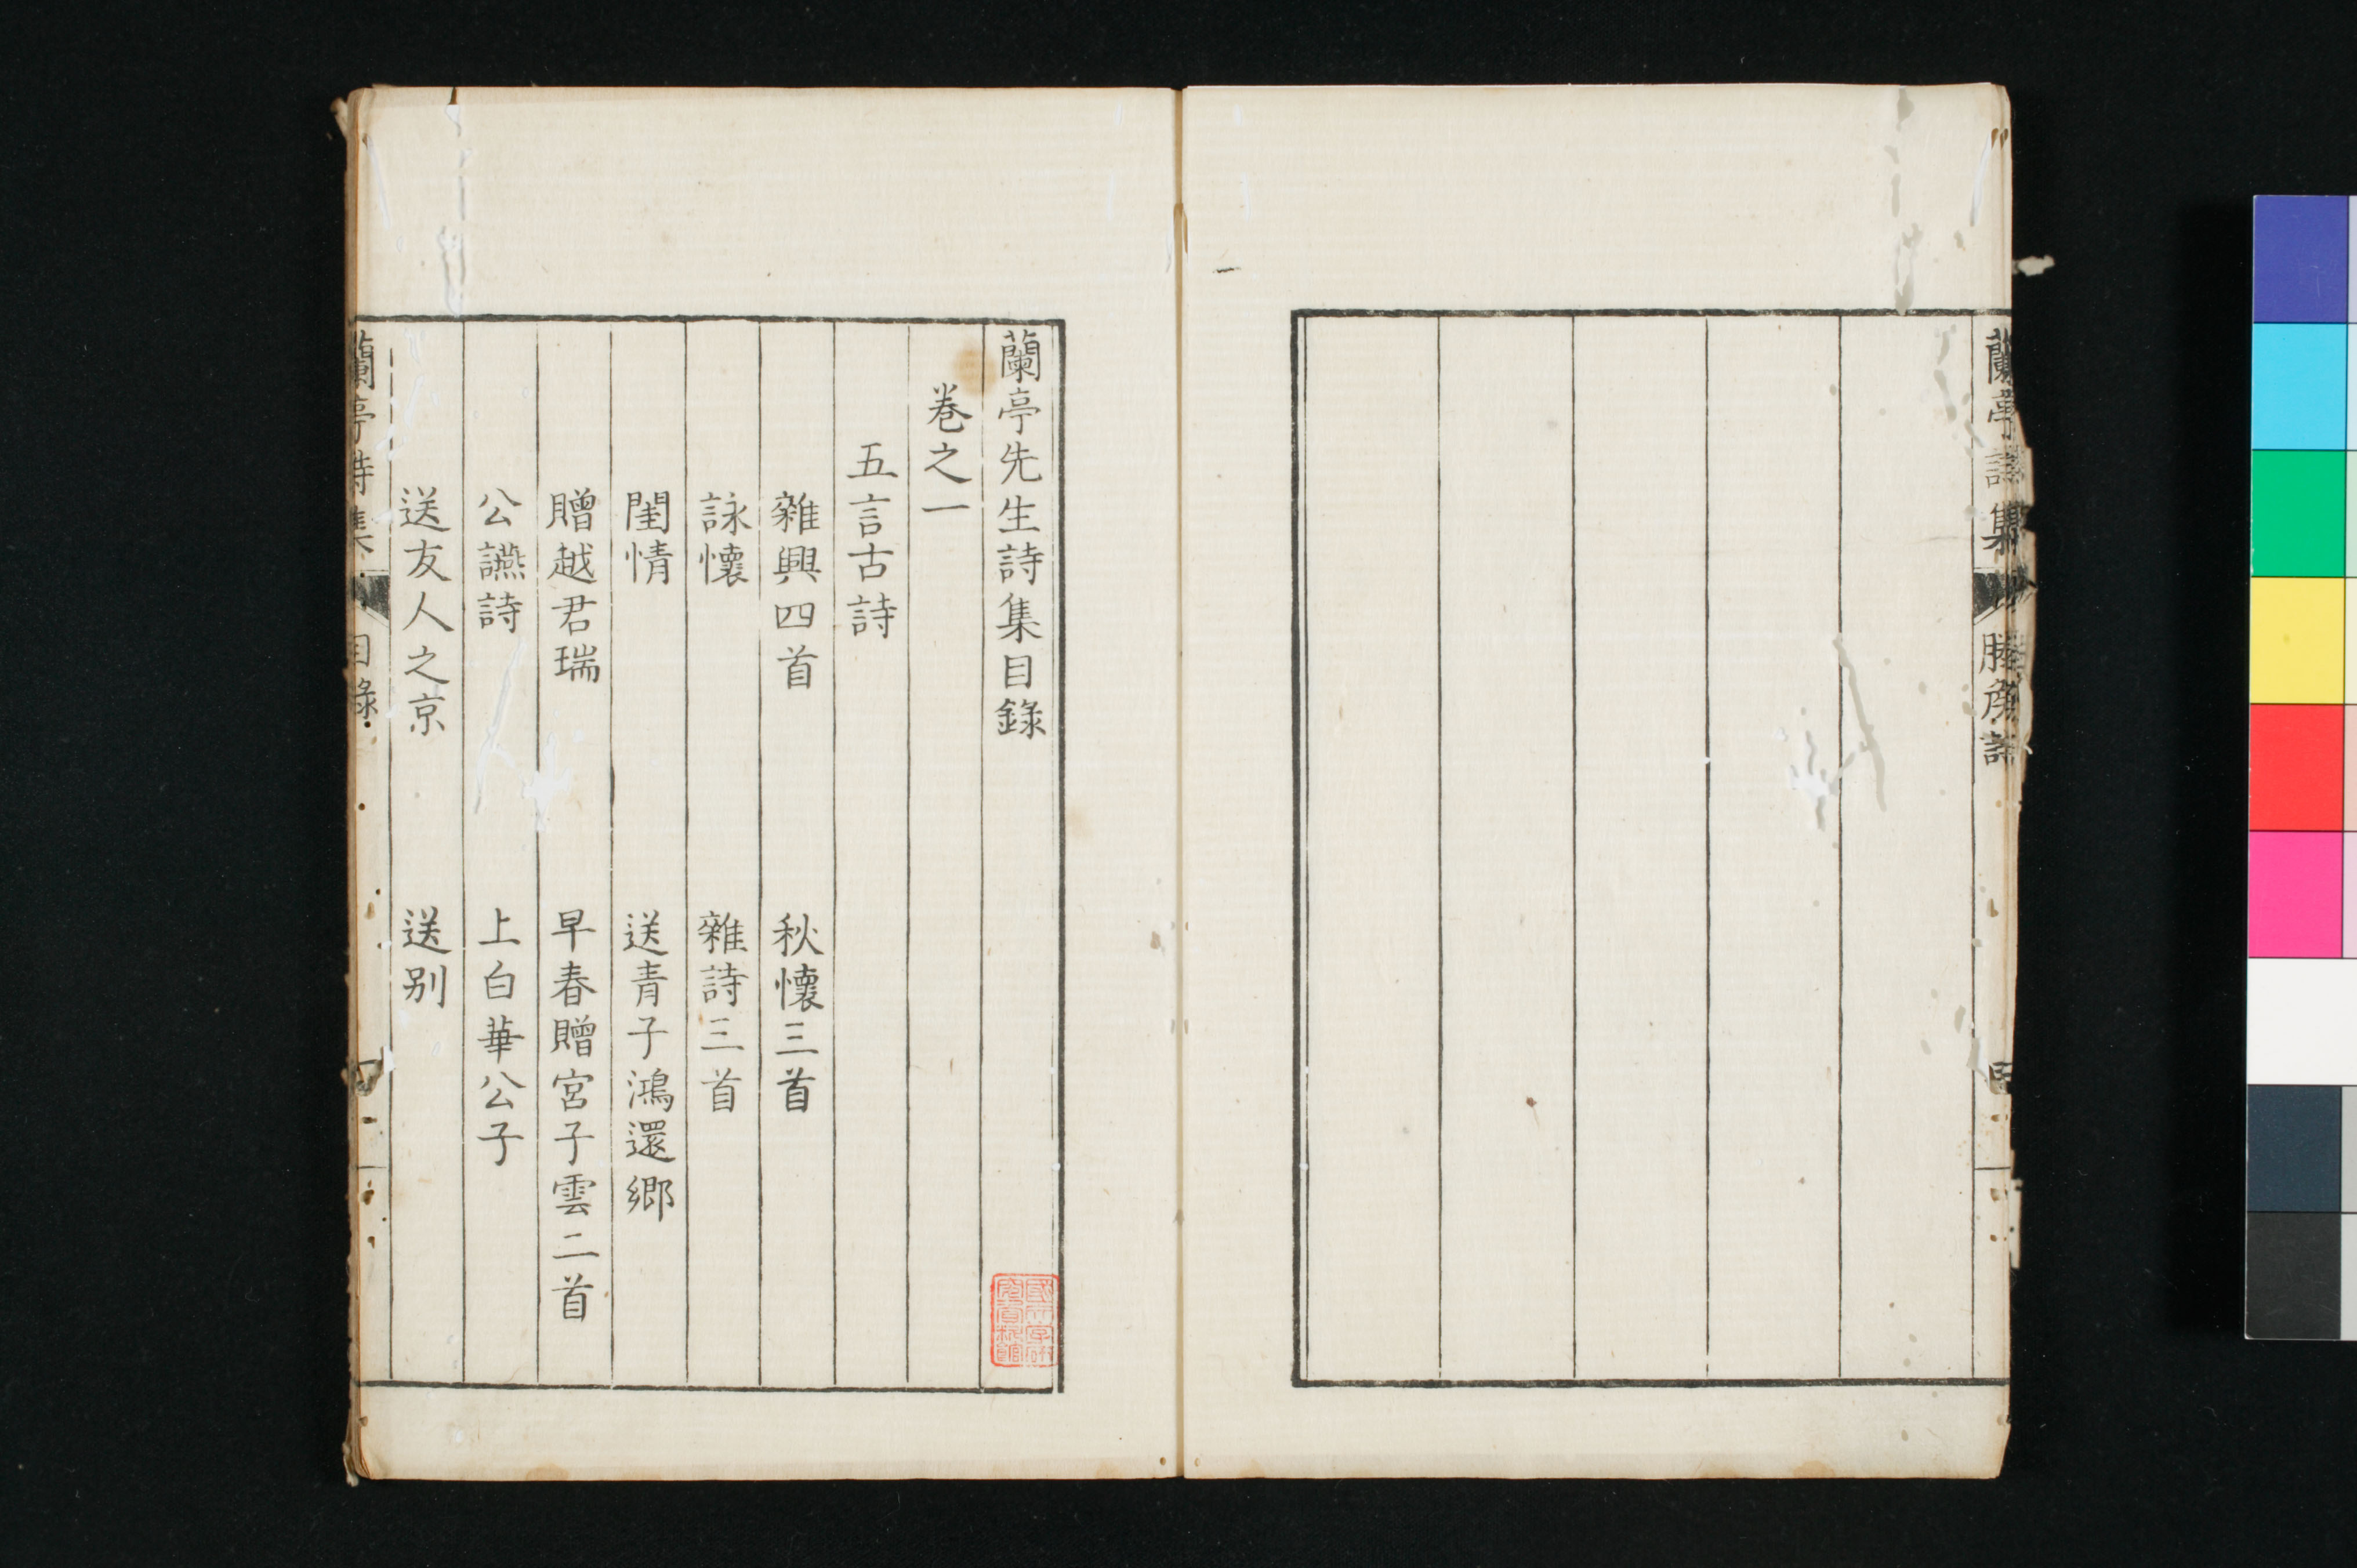 蘭亭先生詩集目錄
卷之一
五言古詩
雜興四首
秋懷三首
詠懷
雜詩三首
閨情
送青子鴻還郷
贈越君瑞
早春贈宮子雲二首
公讌詩
上白華公子
送友人之京
送別
蘭亭詩集
目錄
蘭亭詩集